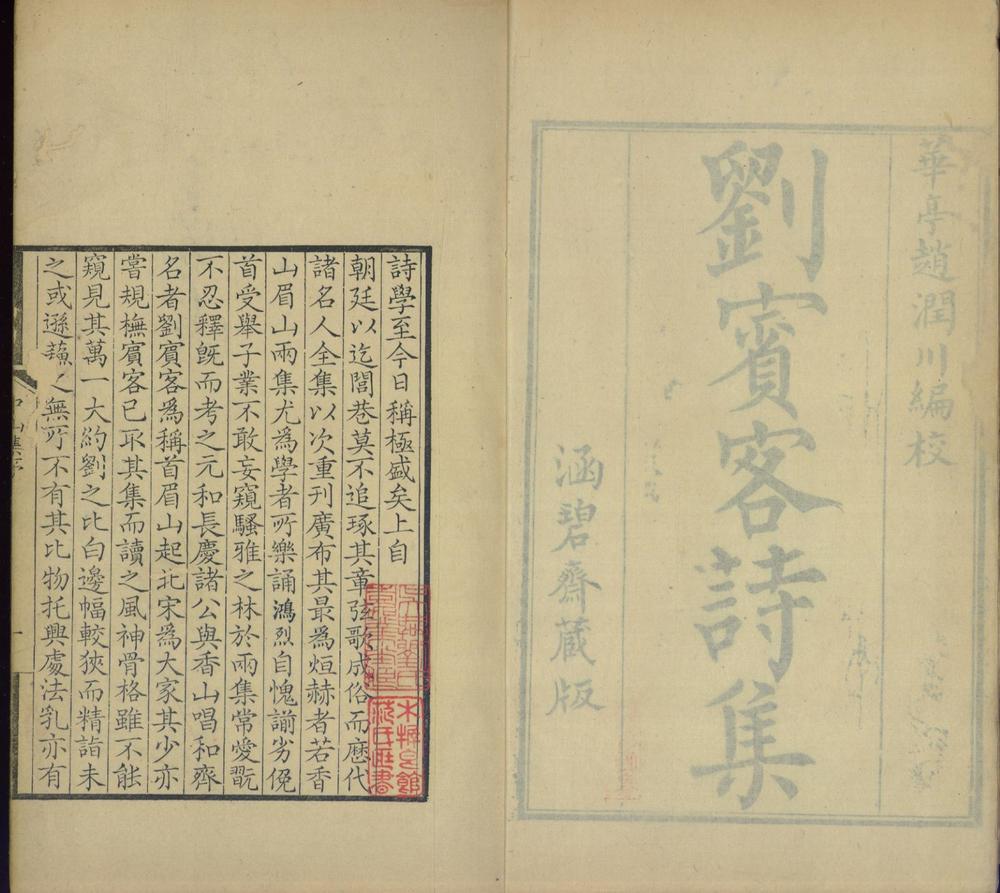 華亭趙潤川編校
劉賓客詩集
涵碧齋藏版
詩學至今日稱極盛矣上自
朝廷以迄閭巷莫不追琢其章弦歌成俗而歷代
諸名人全集以次重刊廣布其最爲烜赫者若香
山眉山兩集尤爲學者所樂誦鴻烈自愧謭劣俛
首受舉子業不敢妄窺騷雅之林於兩集常愛翫
不忍釋旣而考之元和長慶諸公與香山唱和齊
名者劉賓客爲稱首眉山起北宋爲大家其少亦
嘗規橅賓客已取其集而讀之風神骨格雖不能
窺見其萬一大約劉之比白邊幅較狹而精詣未
之或遜蘇之無所不有其比物托興處法乳亦有
中山集序
一